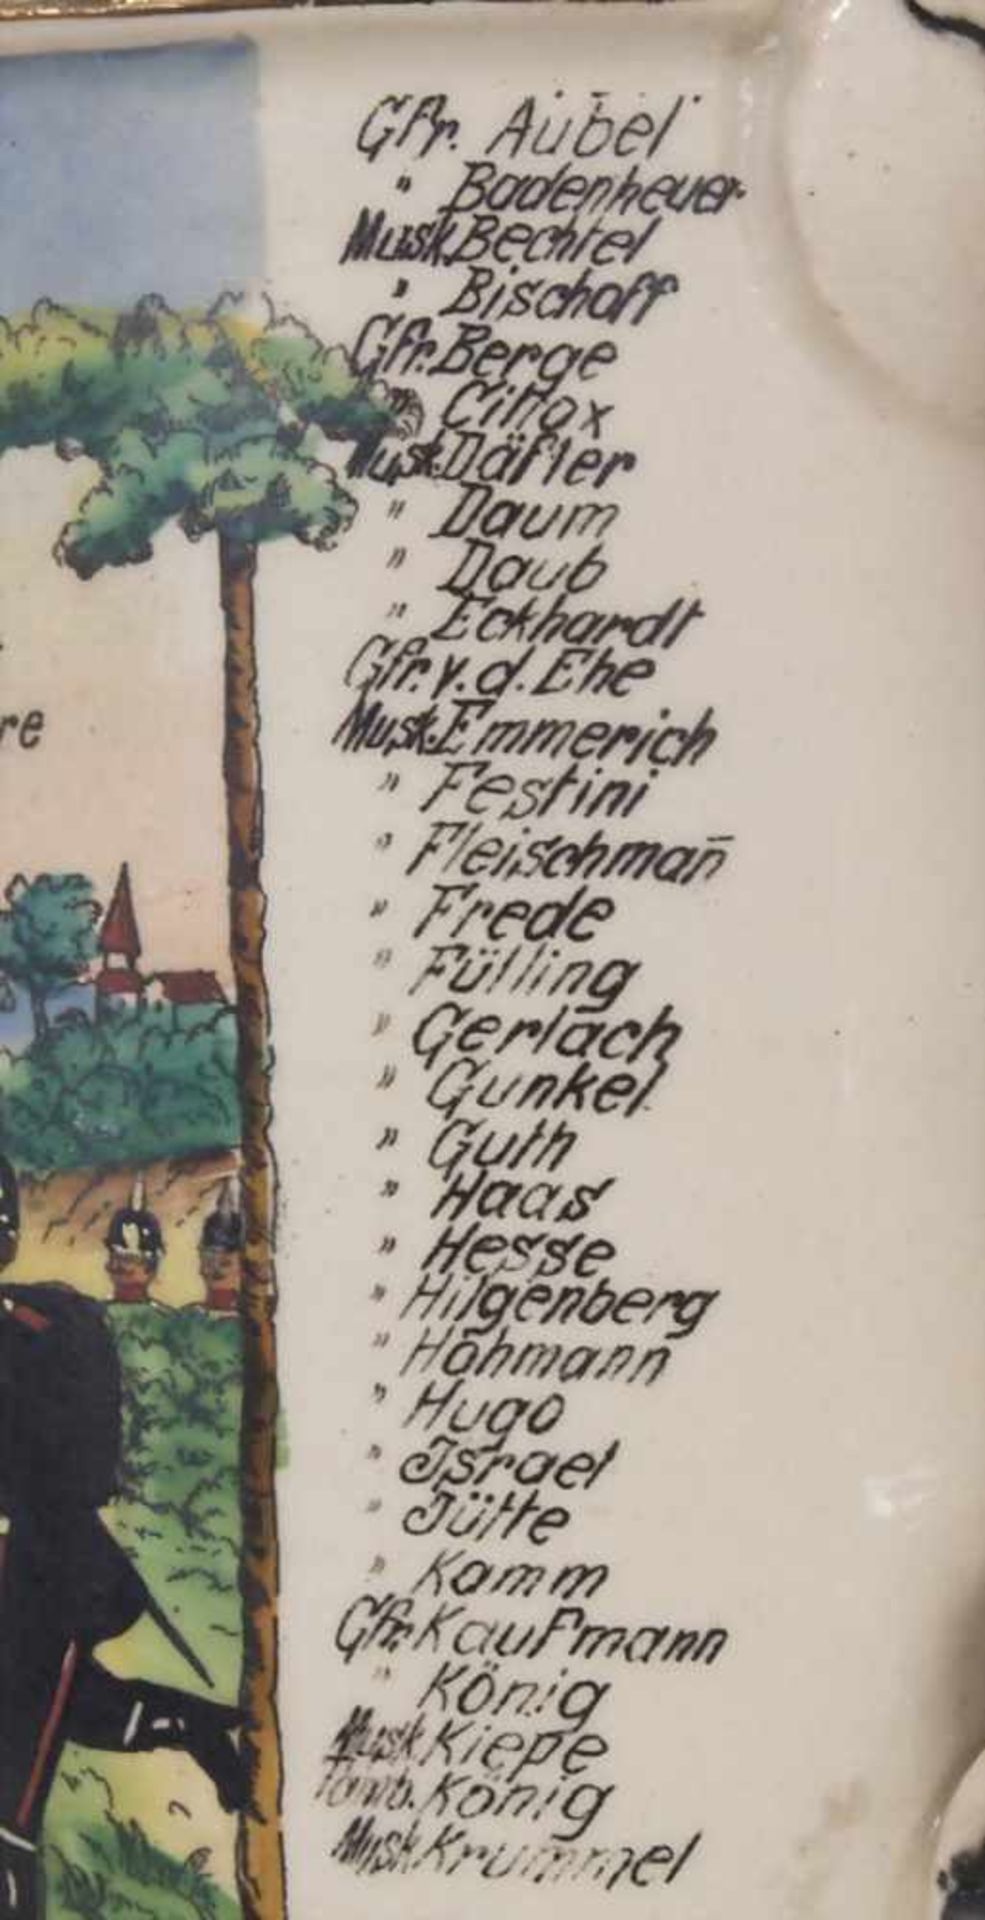 Gfr. Aubel
" Badenheuer
Musk. Bechtel
" Bischoff
Gfr. Berge
" Cittox
Musk. Däfler
" Daum
" Daub
" Eckhardt
Gfr. v. d. Ehe
re
Musk. Emmerich
" Festini
" Fleischman̄
" Frede
" Fülling
" Gerlach
" Gunkel
" Guth
" Haas
" Hesse
" Hilgenberg
" Höhmann
" Hugo
" Israel
" Jütte
" Kamm
Gfr. Kaufmann
" König
Musk. Kiepe
Tamb. König
Musk. Krummel